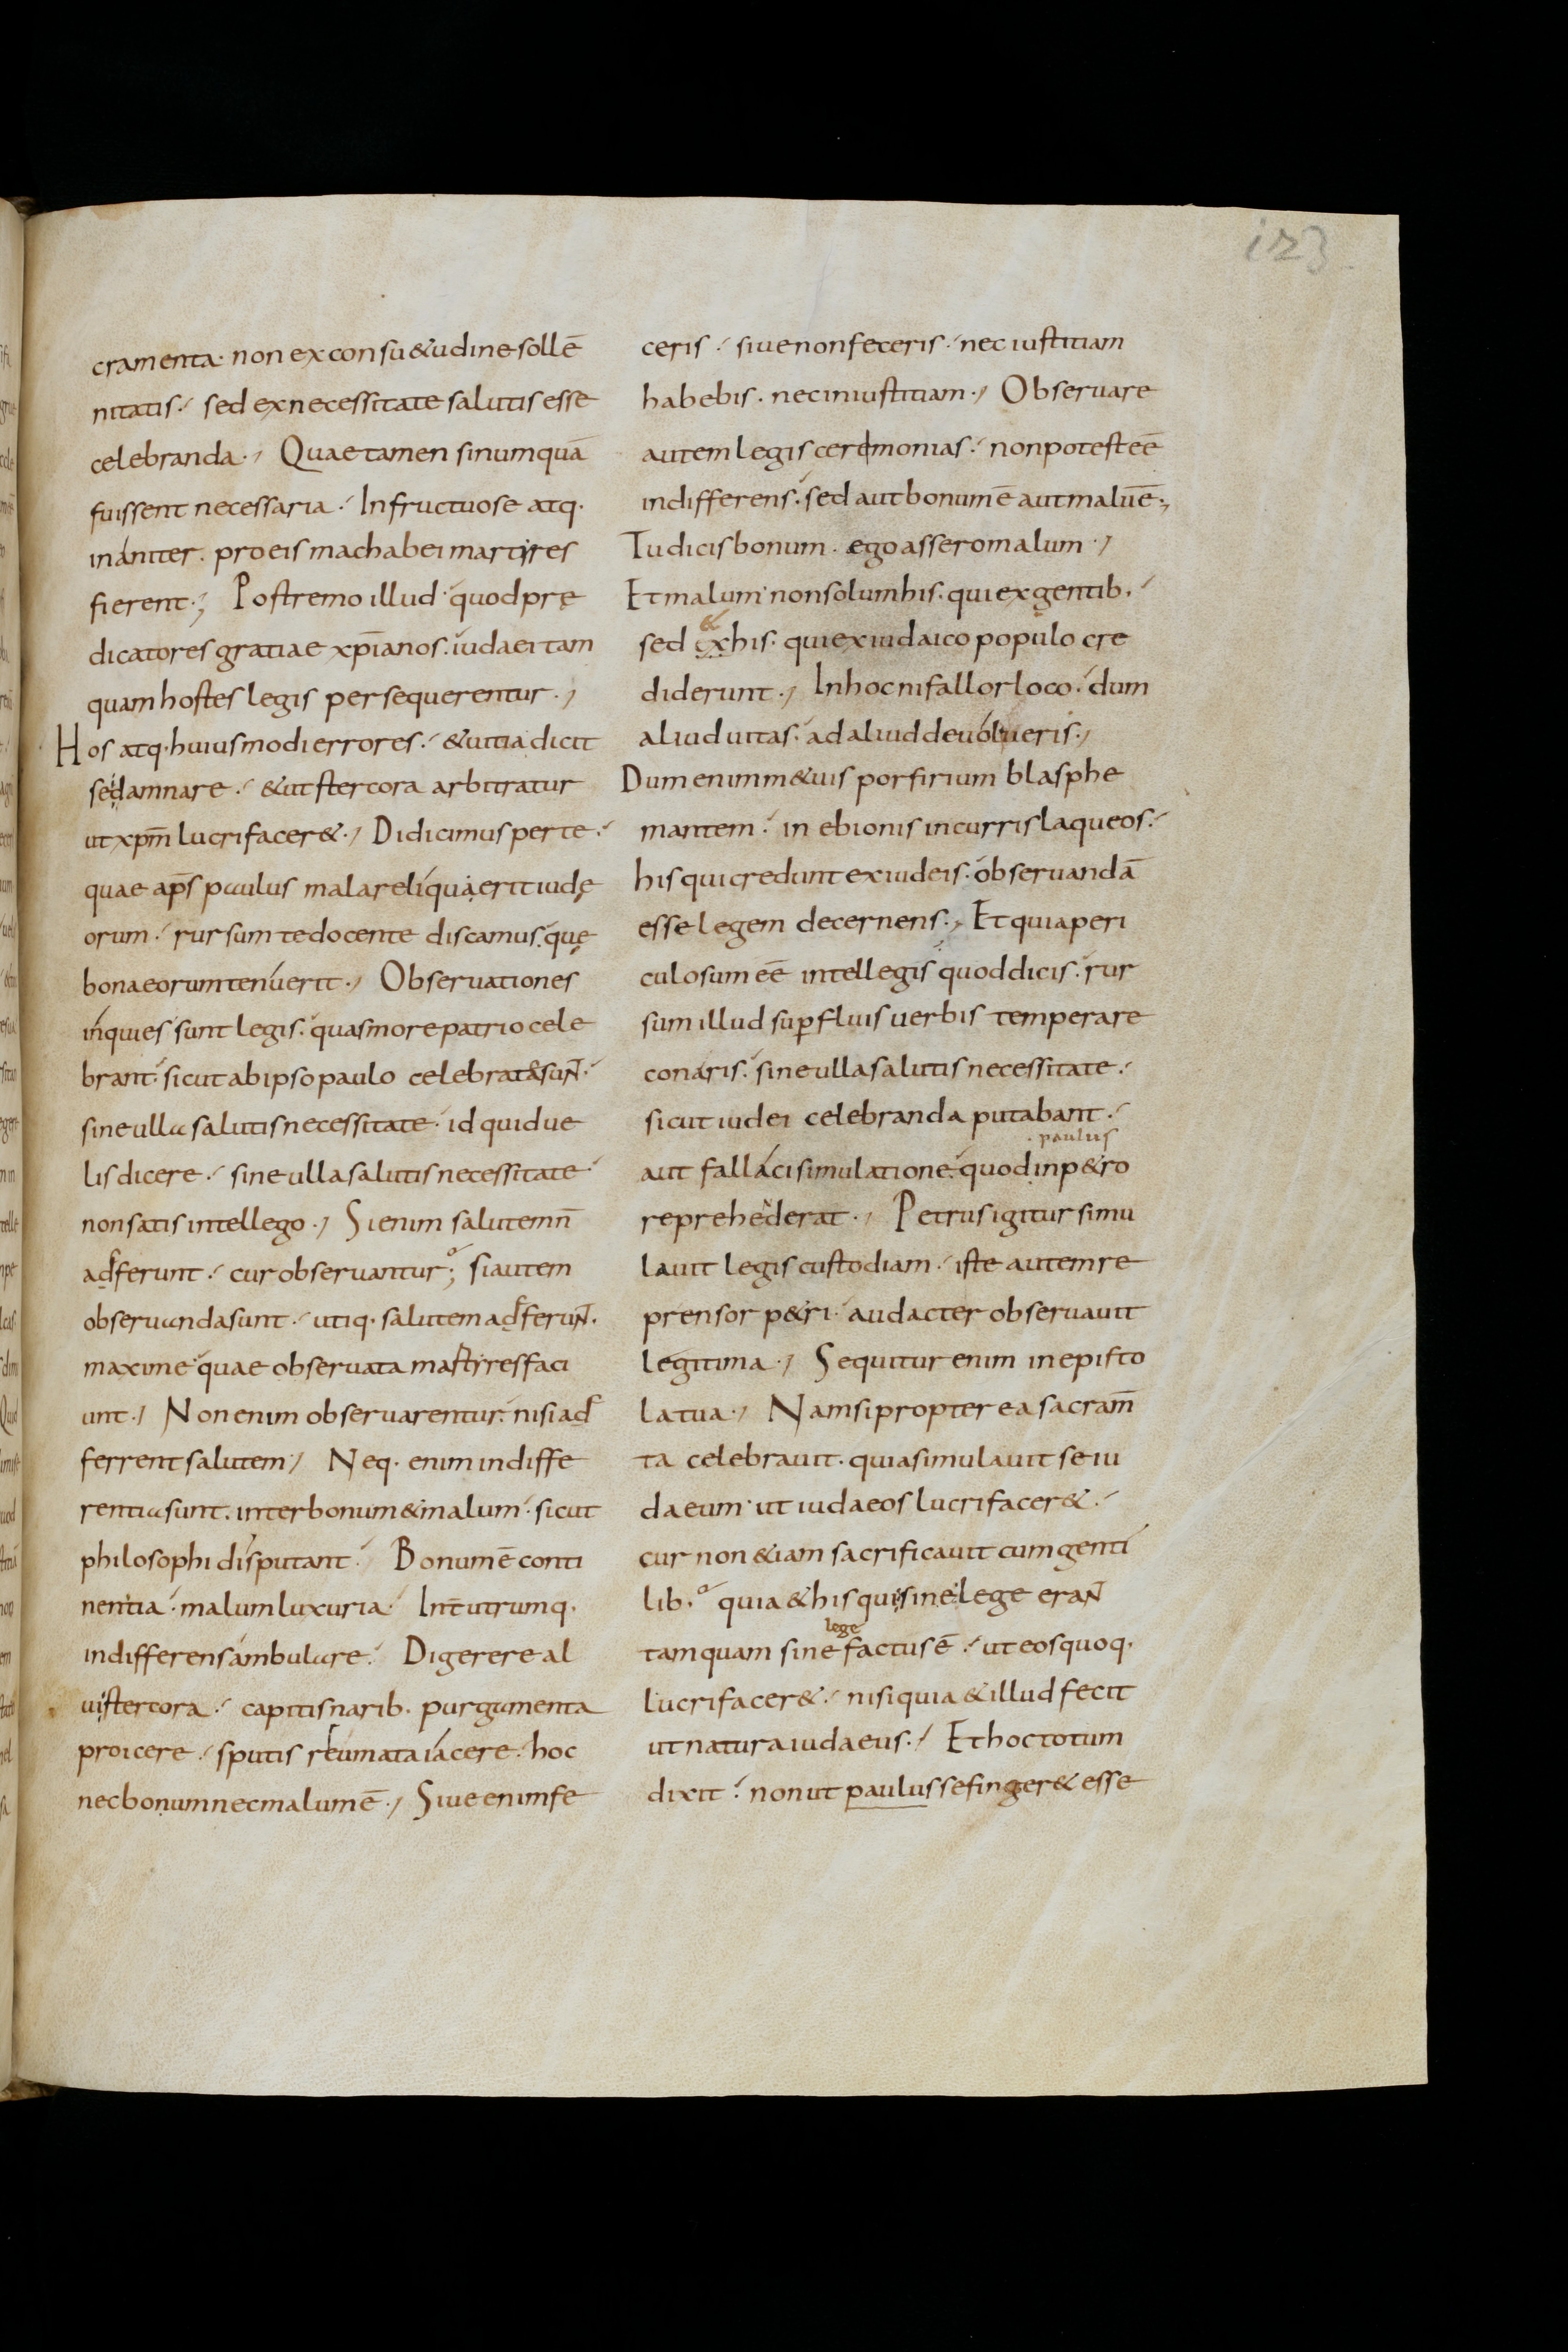 123
cramenta· non ex consu&udine sollē
nitatis· sed ex necessitate salutis esse
celebranda·, Quae tamen si numquā
fuissent necessaria· Infructuose atq·
inaniter· pro eis machabei martyres
fierent·, Postremo illud· quod prę
dicatores gratiae xp̄ianos· iudaei tam
quam hostes legis persequerentur·,
Hos atq· huiusmodi errores· & uitia dicit
se damnare· & ut stercora arbitratur
ut xp̄m lucrifacer&·, Didicimus per te·
quae ap̄s paulus mala reliquaerit iudę
orum· rursum te docente discamus· quę
bona eorum tenuerit·, Obseruationes
inquies sunt legis· quas more patrio cele
brant· sicut ab ipso paulo celebratae sunt·
sine ulla salutis necessitate· id quid ue
lis dicere· sine ulla salutis necessitate
non satis intellego·, Si enim salutem n̄
adferunt· cur obseruantur; si autem
obseruanda sunt· utiq· salutem adferunt·
maxime quae obseruata martires faci
unt·, Non enim obseruarentur· nisi ad
ferrent salutem·, Neq· enim indiffe
rentia sunt· inter bonum & malum· sicut
philosophi disputant· Bonum ē conti
nentia· malum luxuria· Int̄ utrumq·
indifferens ambulare· Digerere al
ui stercora· capitis narib· purgamenta
proicere· sputis reumata iacere· hoc
nec bonum nec malum ē·, Siue enim fe
ceris· siue non feceris· nec iustitiam
habebis· nec iniustitiam·, Obseruare
autem legis ceremonias· non potest eē
indifferens· sed aut bonum ē aut malū ē·,
Tu dicis bonum· ego assero malum·,
Et malum· non solum his· qui ex gentib·
&
sed ex his· qui ex iudaico populo cre
diderunt·, In hoc ni fallor loco· dum
aliud uitas· ad aliud deuolueris·,
Dum enim m&uis porfirium blasphe
mantem· in ebionis incurris laqueos·
his qui credunt ex iudeis· obseruandā
esse legem decernens·, Et quia peri
culosum eē intellegis quod dicis· rur
sum illud sup̄fluis uerbis temperare
conaris· sine ulla salutis necessitate·
sicut iudei celebranda putabant·
paulus
aut fallaci simulatione· quod in p&ro
reprehenderat·, Petrus igitur simu
lauit legis custodiam· iste autem re
prensor p&ri· audacter obseruauit
legitima·, Sequitur enim in episto
la tua·, Nam si propterea sacram̄
ta celebrauit· quia simulauit se iu
daeum· ut iudaeos lucrifacer&·
cur non &iam sacrificauit cum genti
lib· quia & his qui sine lege erant
lege
tamquam sine factus ē· ut eos quoq·
lucrifacer&· nisi quia & illud fecit
ut natura iudaeus·, Et hoc totum
dixit· non ut paulus se finger& esse